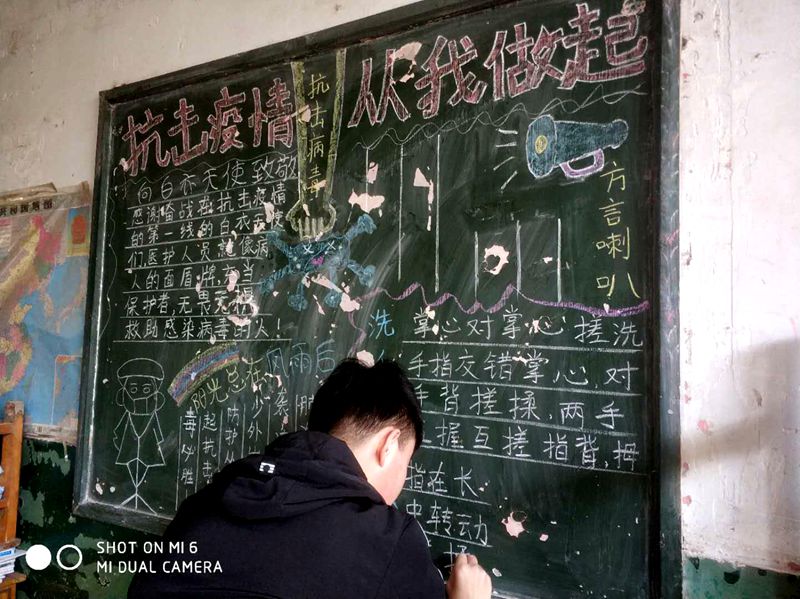 抗击疫情
从我做起
抗击病毒
向白衣天使致敬
感谢奋战在抗击疫情
的第一线的白衣天
们,医护人员就像病
人的面盾牌,充当
保护者,无畏
救助感染病毒的人!
方言喇叭
洗
掌心对掌心搓洗
手指交错掌心对
手背搓揉,两手
握互搓指背,拇
指在长
中转动
风雨后
阳光总在
少外
防护
起抗击
毒必胜
SHOT ON MI 6
MI DUAL CAMERA